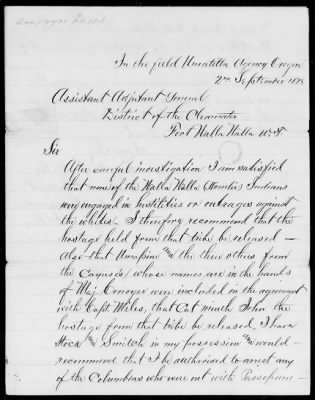 In the field Umatilla Agency Oregon
2nd September 1878
Assistant Adjutant General
District of the Clearwater
Fort Walla Walla W.T.
Sir
After careful investigation I am satisfied
that none of the Walla Walla (Homlis) Indians
were engaged in hostilities or outrages against
the whites — I therefore recommend that the
hostage held from that tribe be released —
Also that Umapine and the three others from
the Cayuses, whose names are in the hands
of Maj. Cornoyer were included in the agreement
with Capt. Miles, that Cut mouth John the
hostage from that tribe be released, I have
and Smitch in my possession and would
recommend that I be authorised to arrest any
of the Columbias who were out with